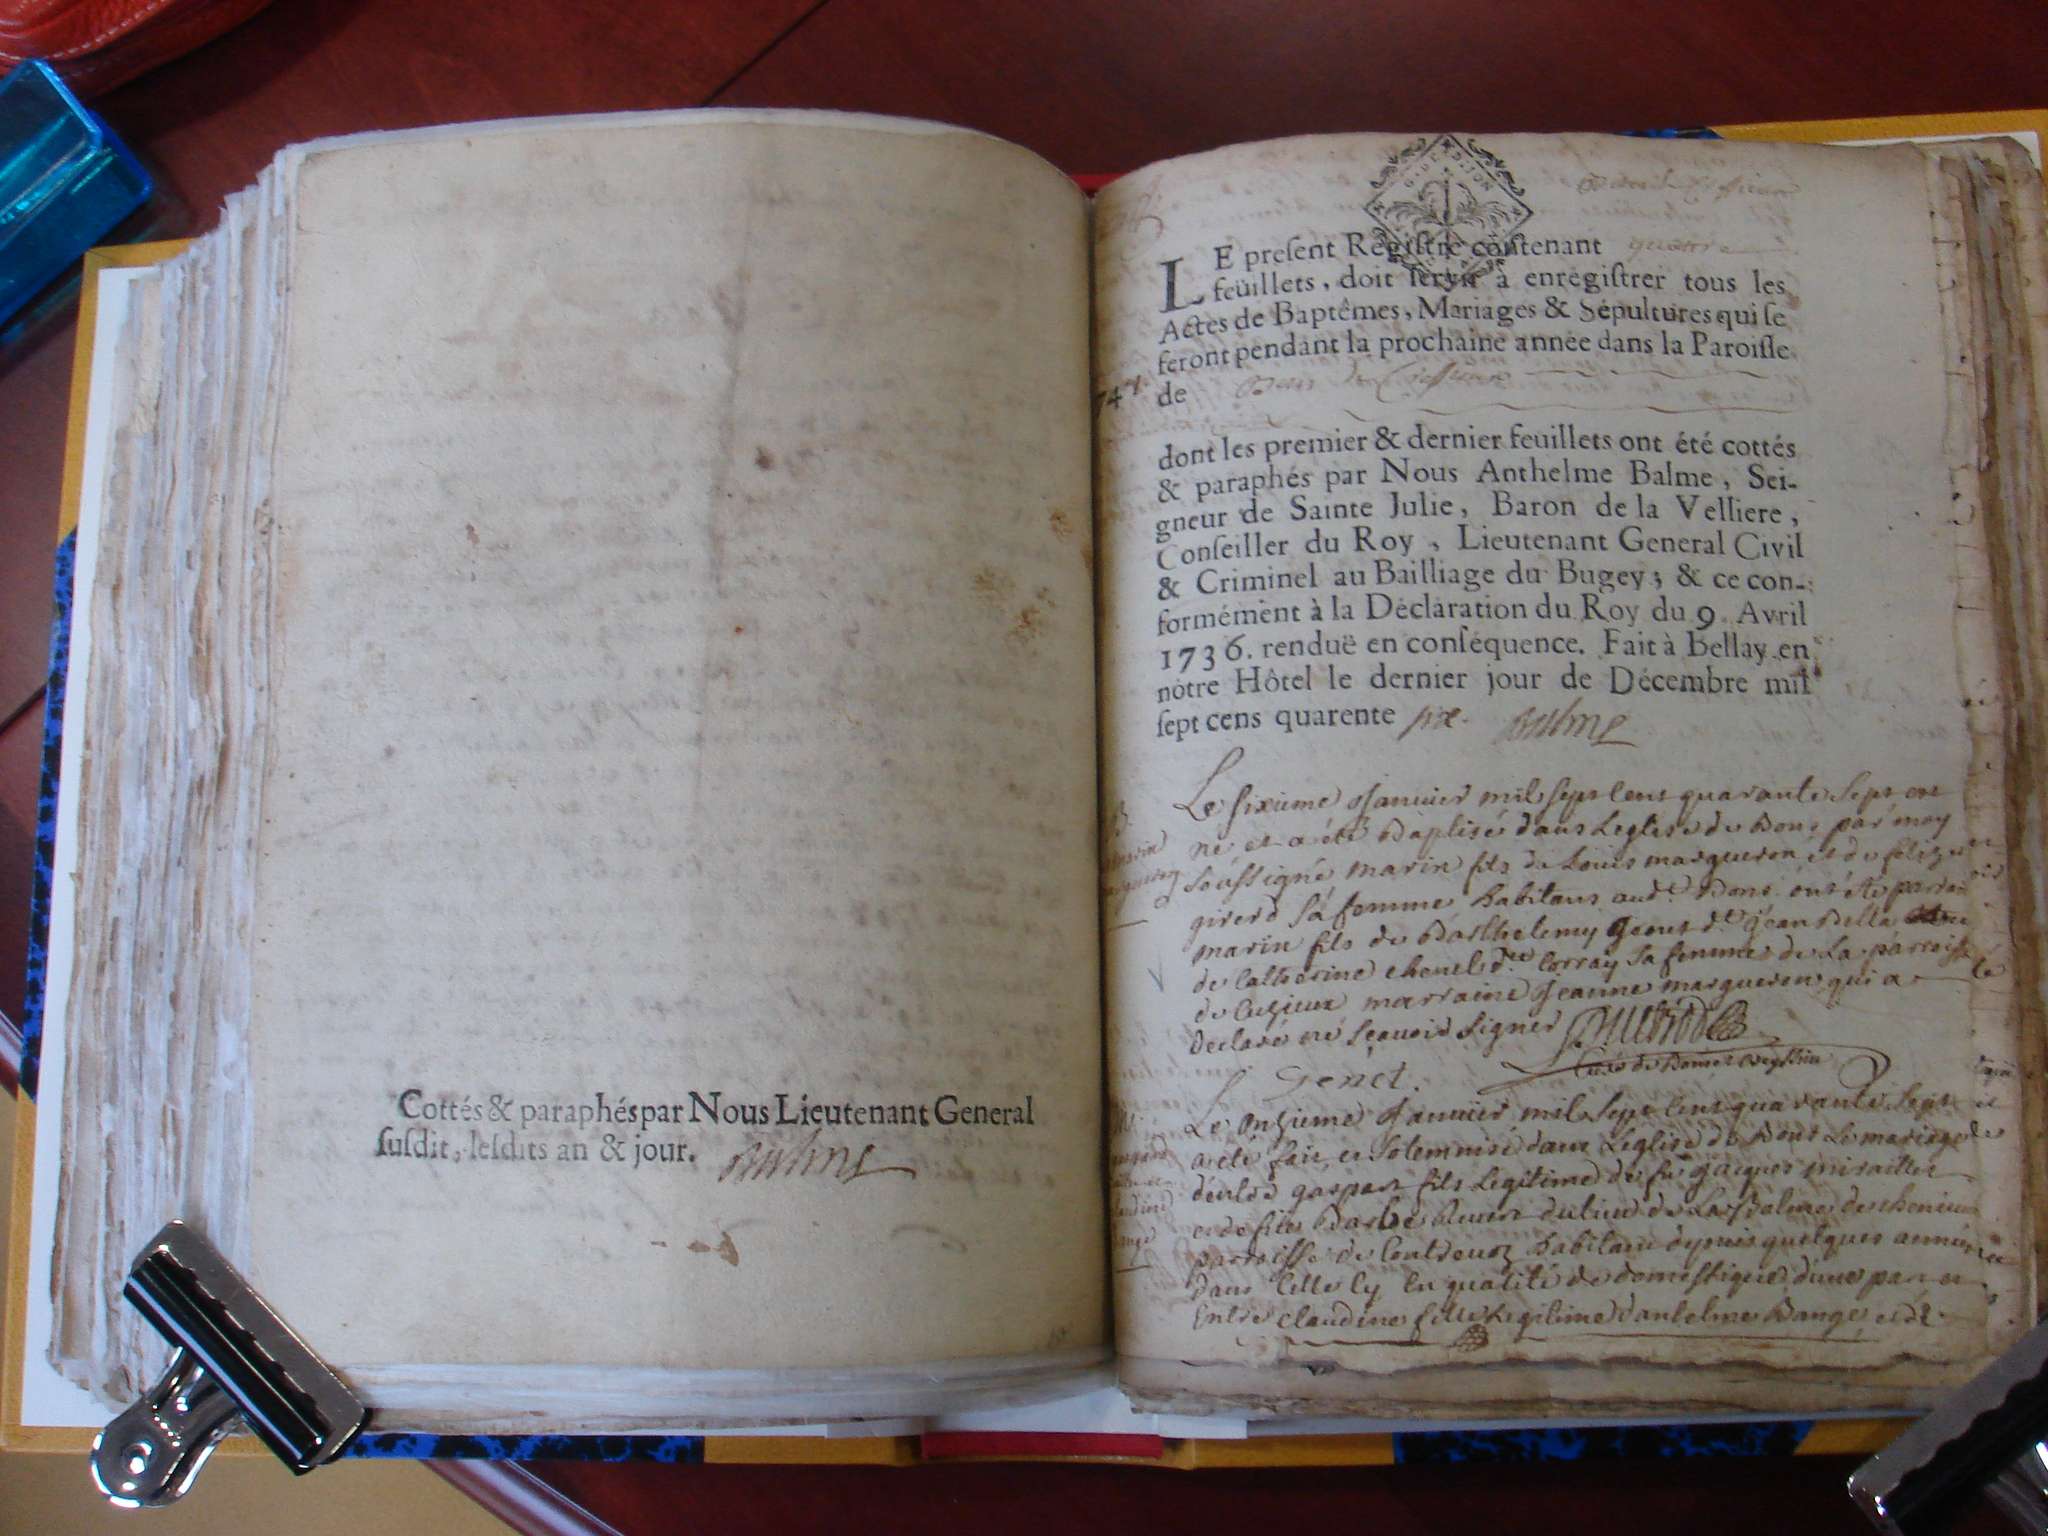 Cottés & paraphés par Nous Lieutenant General
susdit, lesdits an & jour. Balme
G. DE DIJON
LE present Registre contenant quattre
feüillets, doit servir à enregistrer tous les
Actes de Baptêmes, Mariages & Sépultures qui se
feront pendant la prochaine année dans la Paroisse
de Bons
dont les premier & dernier feuillets ont été cottés
& paraphés par Nous Anthelme Balme, Sei-
gneur de Sainte Julie, Baron de la Velliere,
Conseiller du Roy, Lieutenant General Civil
& Criminel au Bailliage du Bugey; & ce con-
formément à la Déclaration du Roy du 9. Avril
1736. renduë en conséquence. Fait à Bellay en
nôtre Hôtel le dernier jour de Décembre mil
sept cens quarente six. Balme
Le sixieme Janvier mil sept cens quarante sept est
né et a été Baptisé dans Leglise de Bons par moy
soussigné marin fils de Louis margueron et de
girerd sa femme habitans aud.t Bons ont été parrain
marin fils de Barthelemy Genet d.t Jean
de Catherine sa femme de La parroisse
de Cuzieux marraine Jeanne margueron qui a
declaré ne scavoir signer
Genet.
Le onzieme Janvier mil sept cens quarante sept
a été fait et solemnisé dans Leglise de Bons Le mariage
d'entre gaspar fils Legitime de fû Jacques
et de Barbe du lieu de La Balme
parroisse de habitant depuis quelques années
dans celle cy en qualité de domestique d'une part et
Entre claudine fille Legitime d'antelme Bange et de